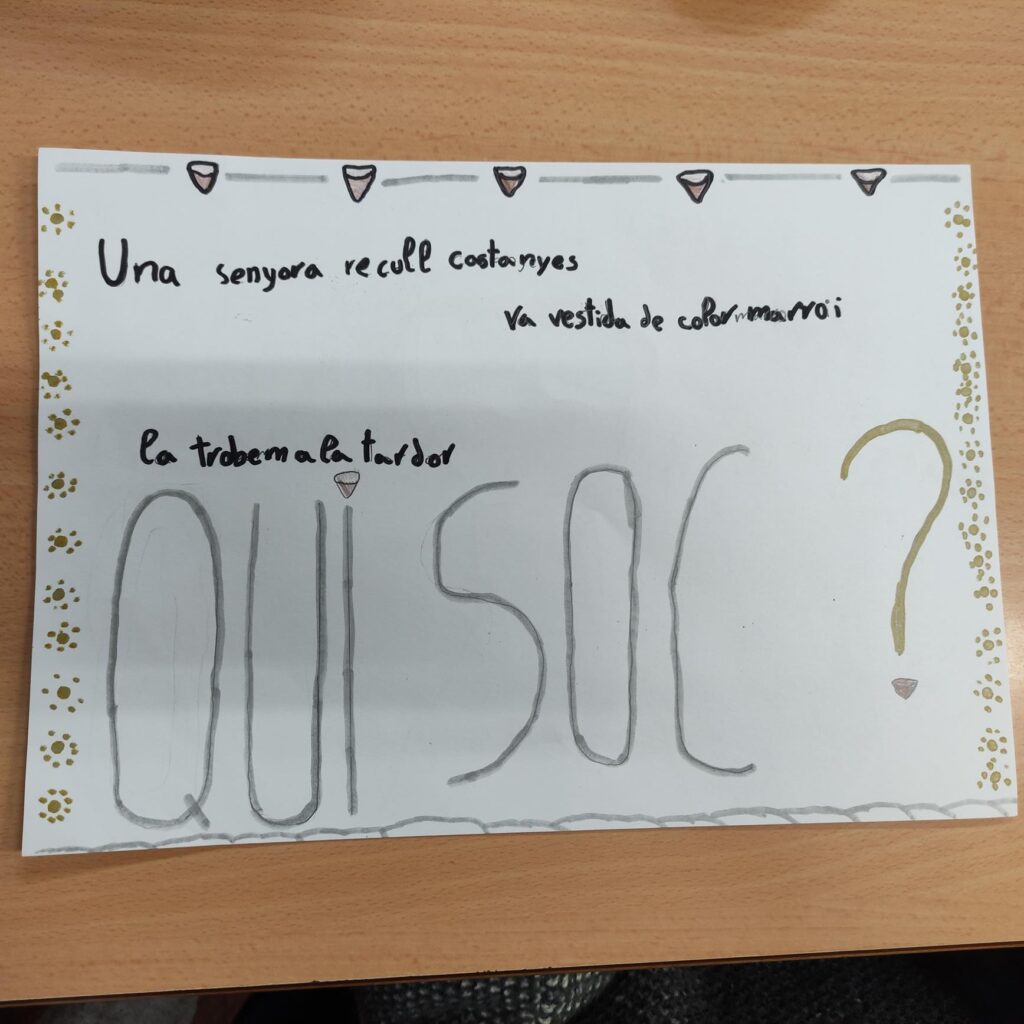 Una senyora recull costanyes
va vestida de color marró i
la trobem a la tardor
QUI SOC?